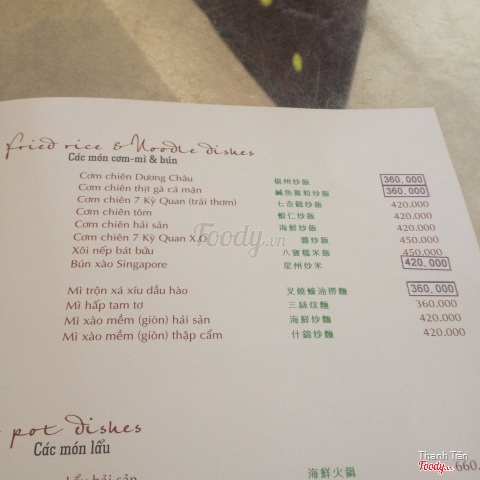 fried rice & Noodle dishes
Các món cơm-mì & bún
Cơm chiên Dương Châu 楊州炒飯 360,000
Cơm chiên thịt gà cá mặn 鹹魚雞粒炒飯 360,000
Cơm chiên 7 Kỳ Quan (trái thơm) 七奇觀炒飯 420.000
Cơm chiên tôm 蝦仁炒飯 420.000
Cơm chiên hải sản 海鮮炒飯 420.000
Cơm chiên 7 Kỳ Quan X.O 醬炒飯 450.000
Xôi nếp bát bửu 八寶糯米飯 450.000
Bún xào Singapore 星州炒米 420,000
Mì trộn xá xíu dầu hào 叉燒蠔油撈麵 360,000
Mì hấp tam tơ 三絲炆麵 360.000
Mì xào mềm (giòn) hải sản 海鮮炒麵 420.000
Mì xào mềm (giòn) thập cẩm 什錦炒麵 420.000
Foody.vn
pot dishes
Các món lẩu
Lẩu hải sản 海鮮火鍋 660.
Thanh Tên
Foody.vn